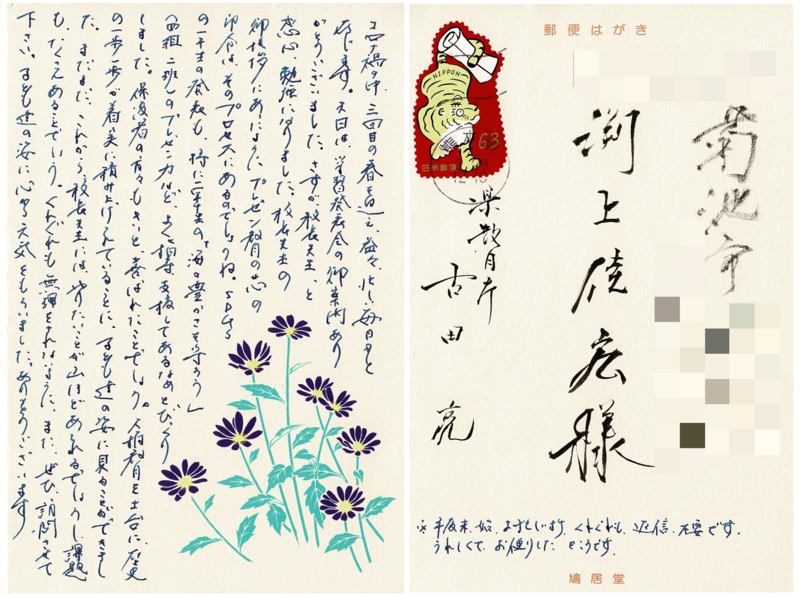 三回目の春を迎え、益々、忙しい毎日と
存じます。先日は、学習発表会の御案内あり
がとうございました。さすが校長先生、と
感心、勉強になりました。校長先生の
御挨拶にあったように、プレゼン教育の芯の
部分は、そのプロセスにあるのでしょうね。
の一年生の発表も、特に二年生の「海の豊かさを守ろう」
のプレゼン力など、よく指導支援してあるなあとびっくり
しました。保護者の方々もきっと喜ばれたことでしょう。人権教育を土台に、歴史
の一歩一歩が着実に積み上げられていることに、子ども達の姿に見ることができまし
た。まだまだ、これから校長先生には、やりたいことが山ほどあられるでしょうし、課題
も、たくさんあることでしょう。くれぐれも無理をされないように、また、ぜひ、訪問させて
下さい。子ども達の姿に心から元気をもらいました。ありがとうございます
郵便はがき
NIPPON
63
日本郵便
菊池市
渕上 宏様
県教育庁
古田 亮
※年度末、始、お忙しい折、くれぐれも、返信不要です。
うれしくて、お便りした ところです。
鳩居堂